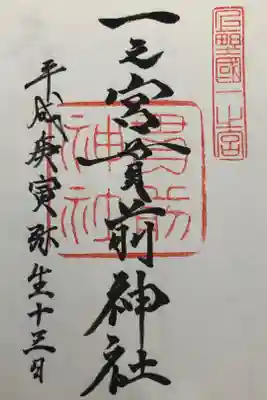 上野國一之宮
一之宮貫前神社
貫前神社
平成庚寅弥生十三日